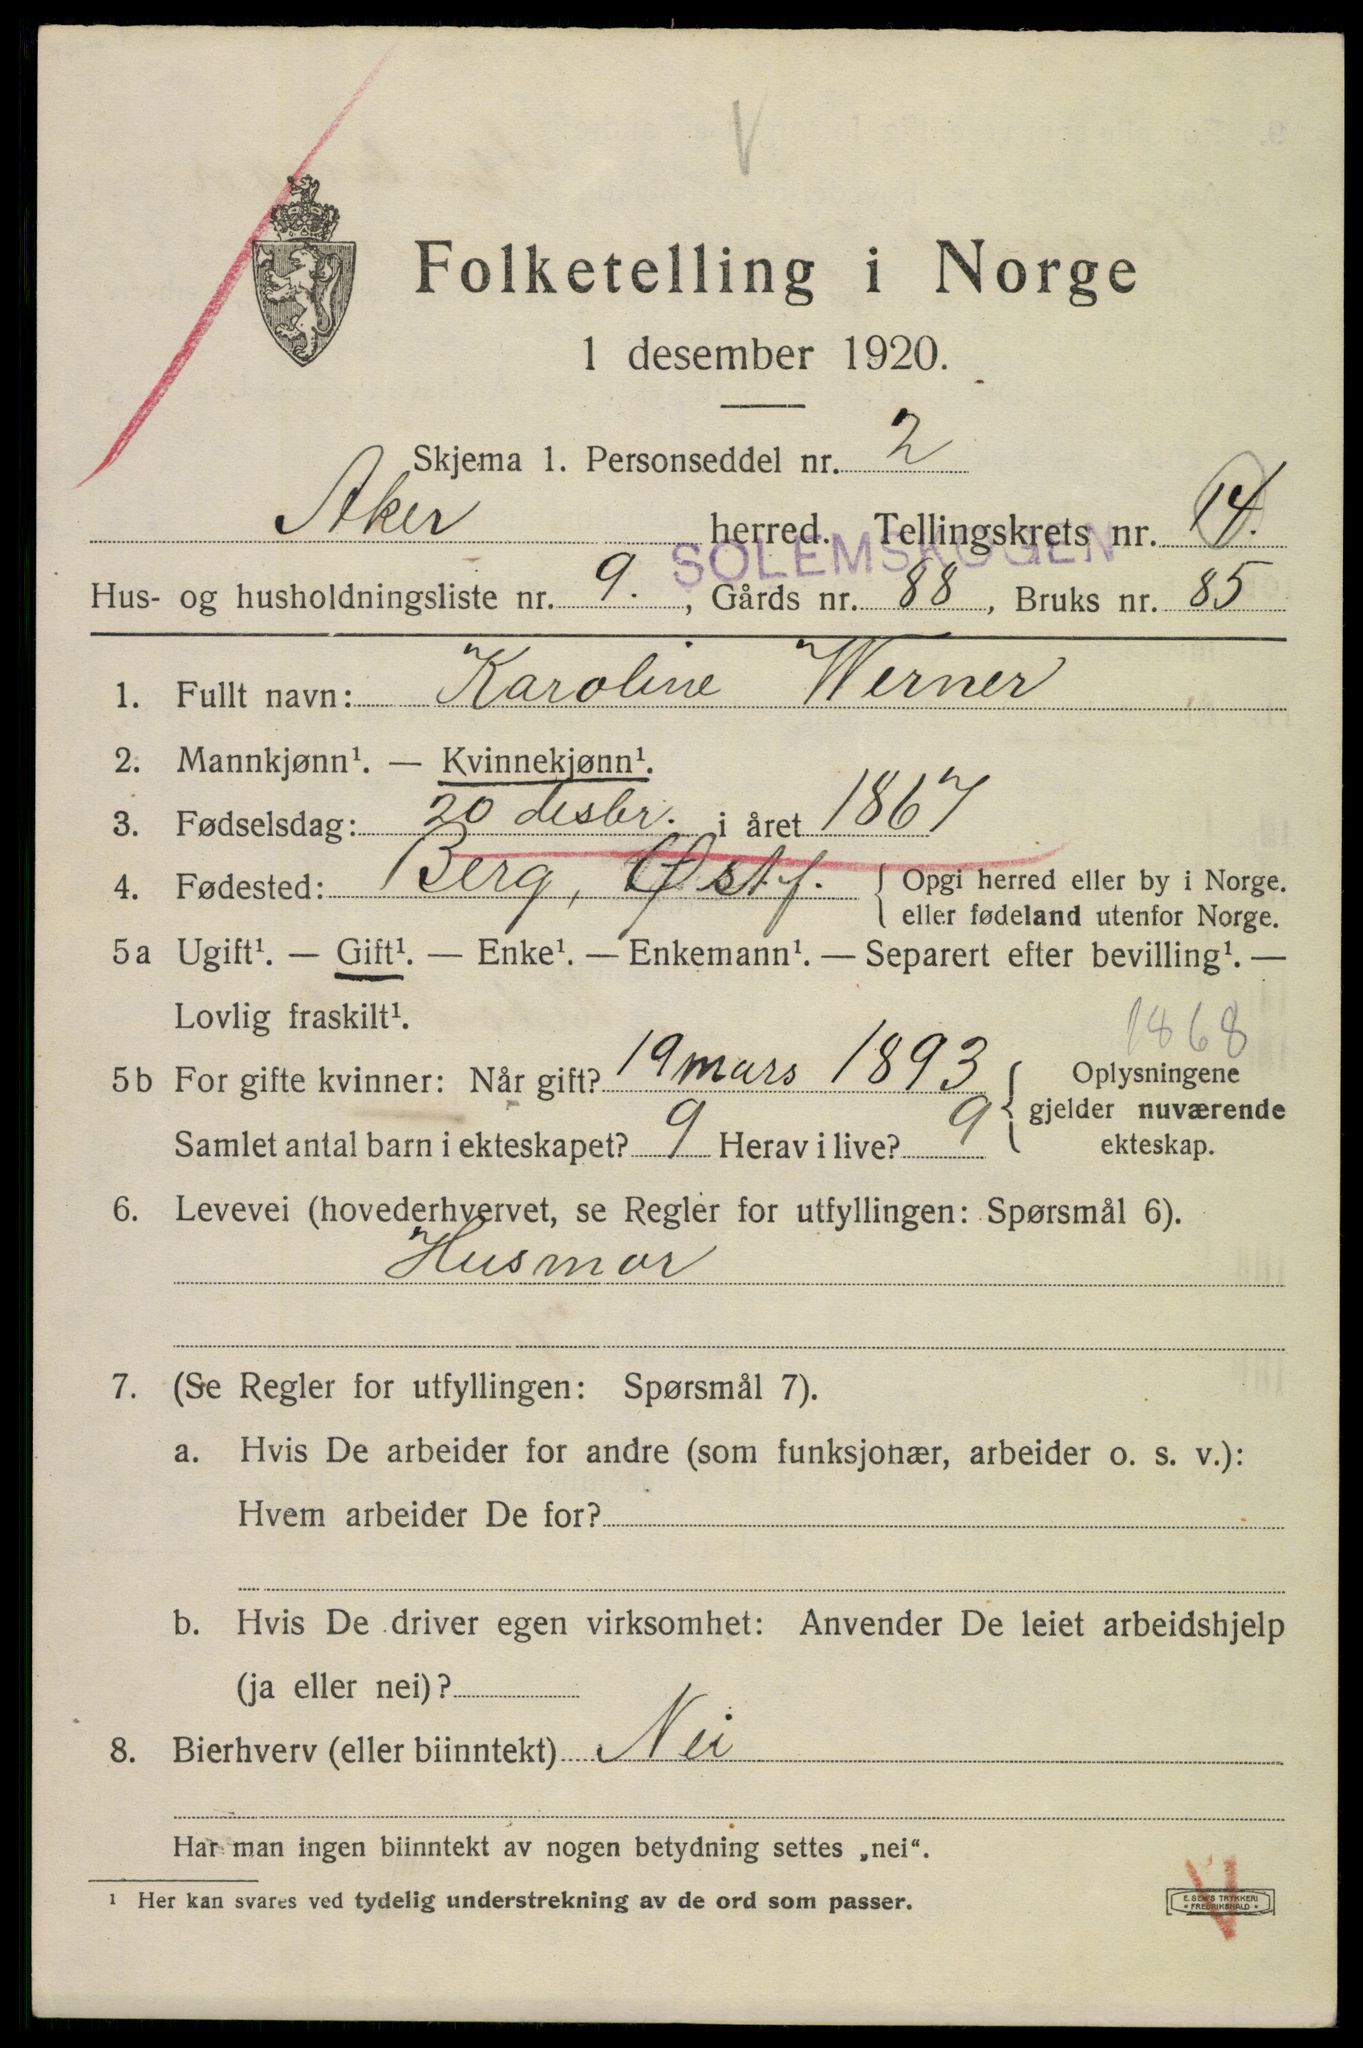 V
Folketelling i Norge
1 desember 1920.
Skjema 1. Personseddel nr. 2
Aker herred. Tellingskrets nr. 14.
SOLEMSKOGEN
Hus- og husholdningsliste nr. 9. , Gårds nr. 88 , Bruks nr. 85
1. Fullt navn: Karoline Werner
2. Mannkjønn¹. — Kvinnekjønn¹.
3. Fødselsdag: 20 desbr. i året 1867
4. Fødested: Berg, Østf. { Opgi herred eller by i Norge.
eller fødeland utenfor Norge.
5a Ugift¹. — Gift¹. — Enke¹. — Enkemann¹. — Separert efter bevilling¹. —
Lovlig fraskilt¹.
1868
5b For gifte kvinner: Når gift? 19 mars 1893 { Oplysningene
gjelder nuværende
Samlet antal barn i ekteskapet? 9 Herav i live? 9 ekteskap.
6. Levevei (hovederhvervet, se Regler for utfyllingen: Spørsmål 6).
Husmor
7. (Se Regler for utfyllingen: Spørsmål 7).
a. Hvis De arbeider for andre (som funksjonær, arbeider o. s. v.):
Hvem arbeider De for?
b. Hvis De driver egen virksomhet: Anvender De leiet arbeidshjelp
(ja eller nei)?
8. Bierhverv (eller biinntekt) Nei
Har man ingen biinntekt av nogen betydning settes „nei“.
¹ Her kan svares ved tydelig understrekning av de ord som passer.
E. SEM'S TRYKKERI
* FREDRIKSHALD *
V